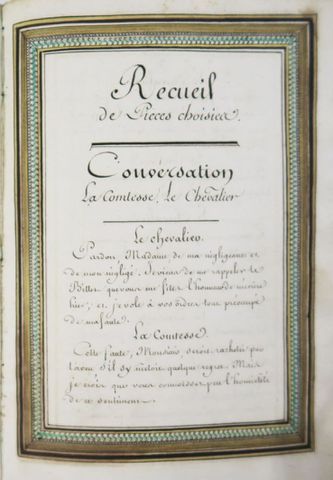 Recueil
de Pieces choisies.
Conversation
La Comtesse, Le Chevalier
Le chevalier.
Pardon, Madame de ma négligence et
de mon négligé. Je viens de me rappeler le
Billet que vous me fites l'honneur de m'écrire
hier, et je vole à vos ordres tout
de ma faute.
La Comtesse.
Cette faute, Monsieur seroit rachetée par
l'aveu s'il s'y mêloit quelque regret. Mais
je crois que vous connoissez peu l'honnêteté
de ce sentiment.